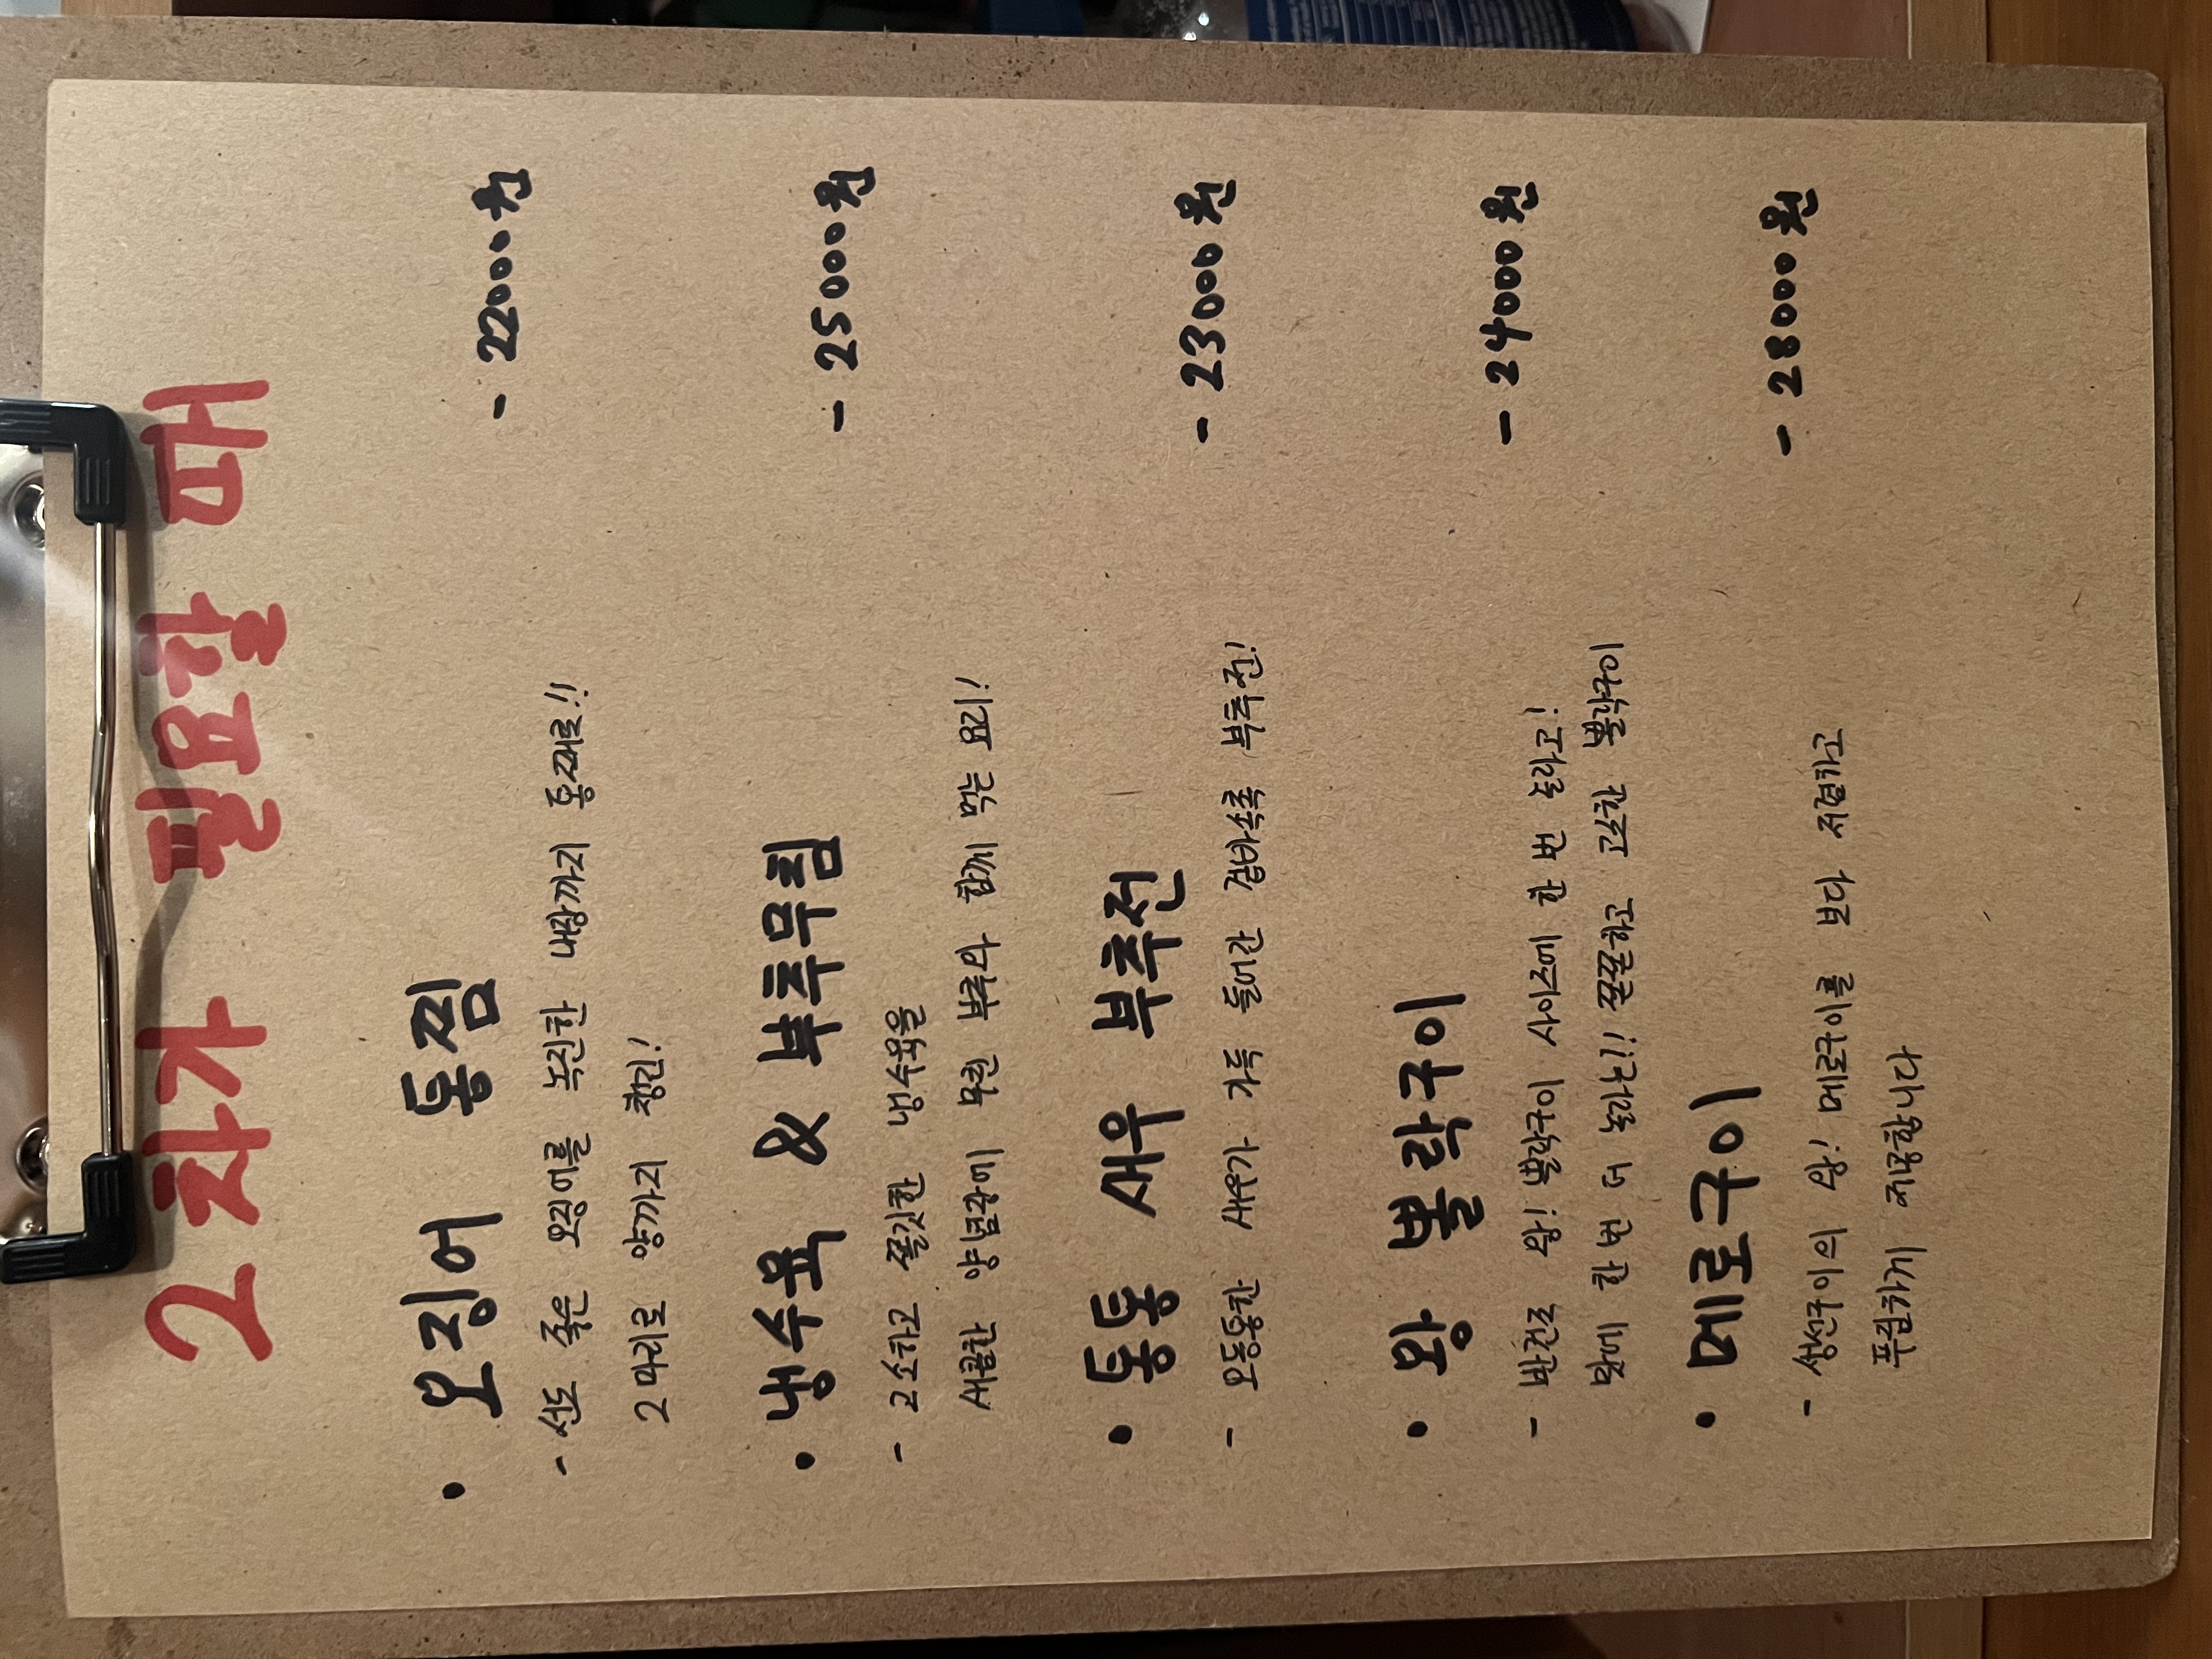 2차가 필요할 때
• 오징어 통찜 - 22000원
- 선도 죽은 오징어를 녹진한 내장까지 통째로!!
2마리로 양까지 챙긴!
• 냉수육 & 부추무침 - 25000원
- 고소하고 쫄깃한 냉수육을
새콤한 양념장에 무친 부추와 함께 먹는 요리!
• 통통 새우 부추전 - 23000원
- 오동통한 새우가 가득 들어간 겉바속촉 부추전!
• 왕 뽈락구이 - 24000원
- 반건조 왕! 뽈락구이 사이즈에 한 번 놀라고!
맛에 한번 더 놀라는!! 꼴꼴하고 고소한 뽈락구이
• 메로구이 - 28000원
- 생선구이의 왕! 메로구이를 보다 저렴하고
푸짐하게 제공합니다